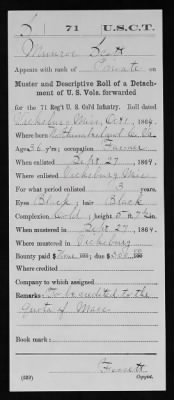 S | 71 | U.S.C.T.
Munroe Scott
Appears with rank of Private on
Muster and Descriptive Roll of a Detach-
ment of U. S. Vols. forwarded
for the 71 Reg't U. S. Col'd Infantry. Roll dated
Vicksburg Miss, Oct 1, 1864.
Where born Northumberland Co Va
Age 36 y'rs; occupation Farmer
When enlisted Sept. 27, 1864.
Where enlisted Vicksburg Miss
For what period enlisted 3 years.
Eyes Black; hair Black
Complexion Cold; height 5 ft. 7½ in.
When mustered in Sept. 27, 1864.
Where mustered in Vicksburg
Bounty paid $ None 100; due $ 100
Where credited
Company to which assigned
Remarks: To be credited to the
Quota of Mass
Book mark:
(339) Copyist.